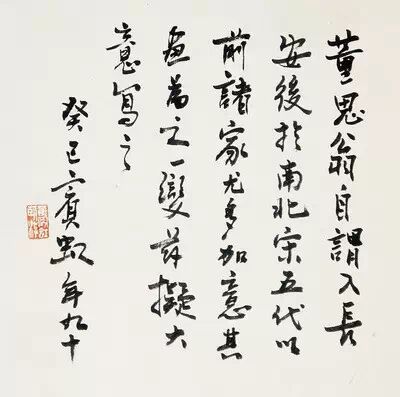 董思翁自謂入長
安後於南北宋五代以
前諸家尤多加意其
画為之一變茲擬大
意寫之
癸巳賓虹年九十